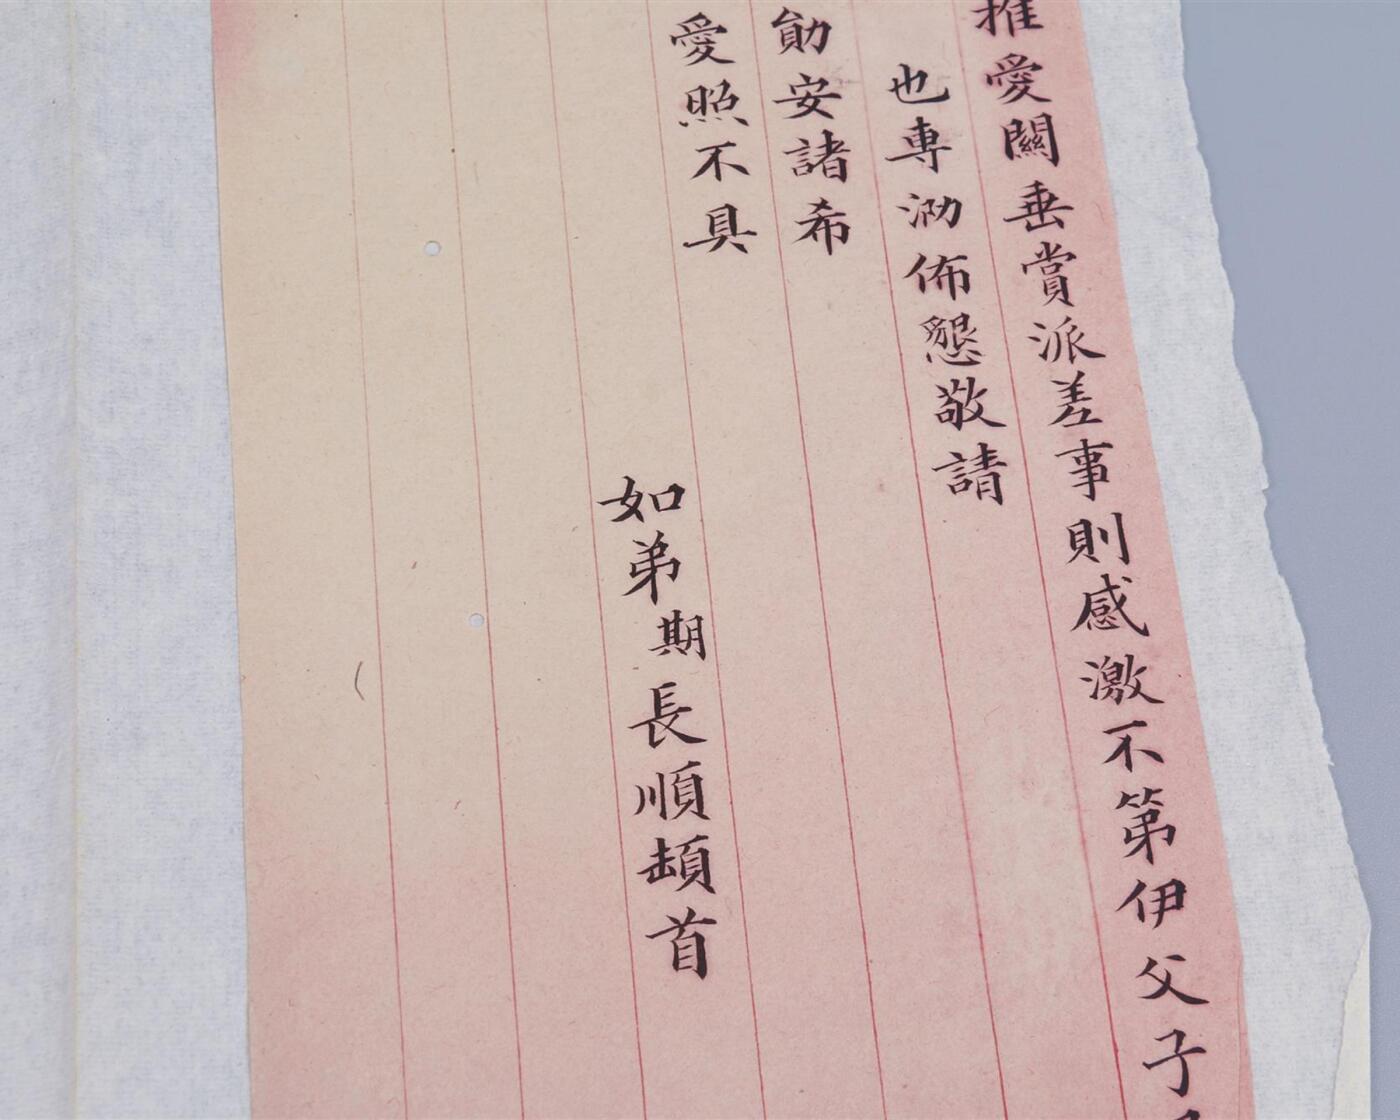 推愛關垂賞派差事則感激不第伊父子
也專泐佈懇敬請
勛安諸希
愛照不具
如弟期長順頓首